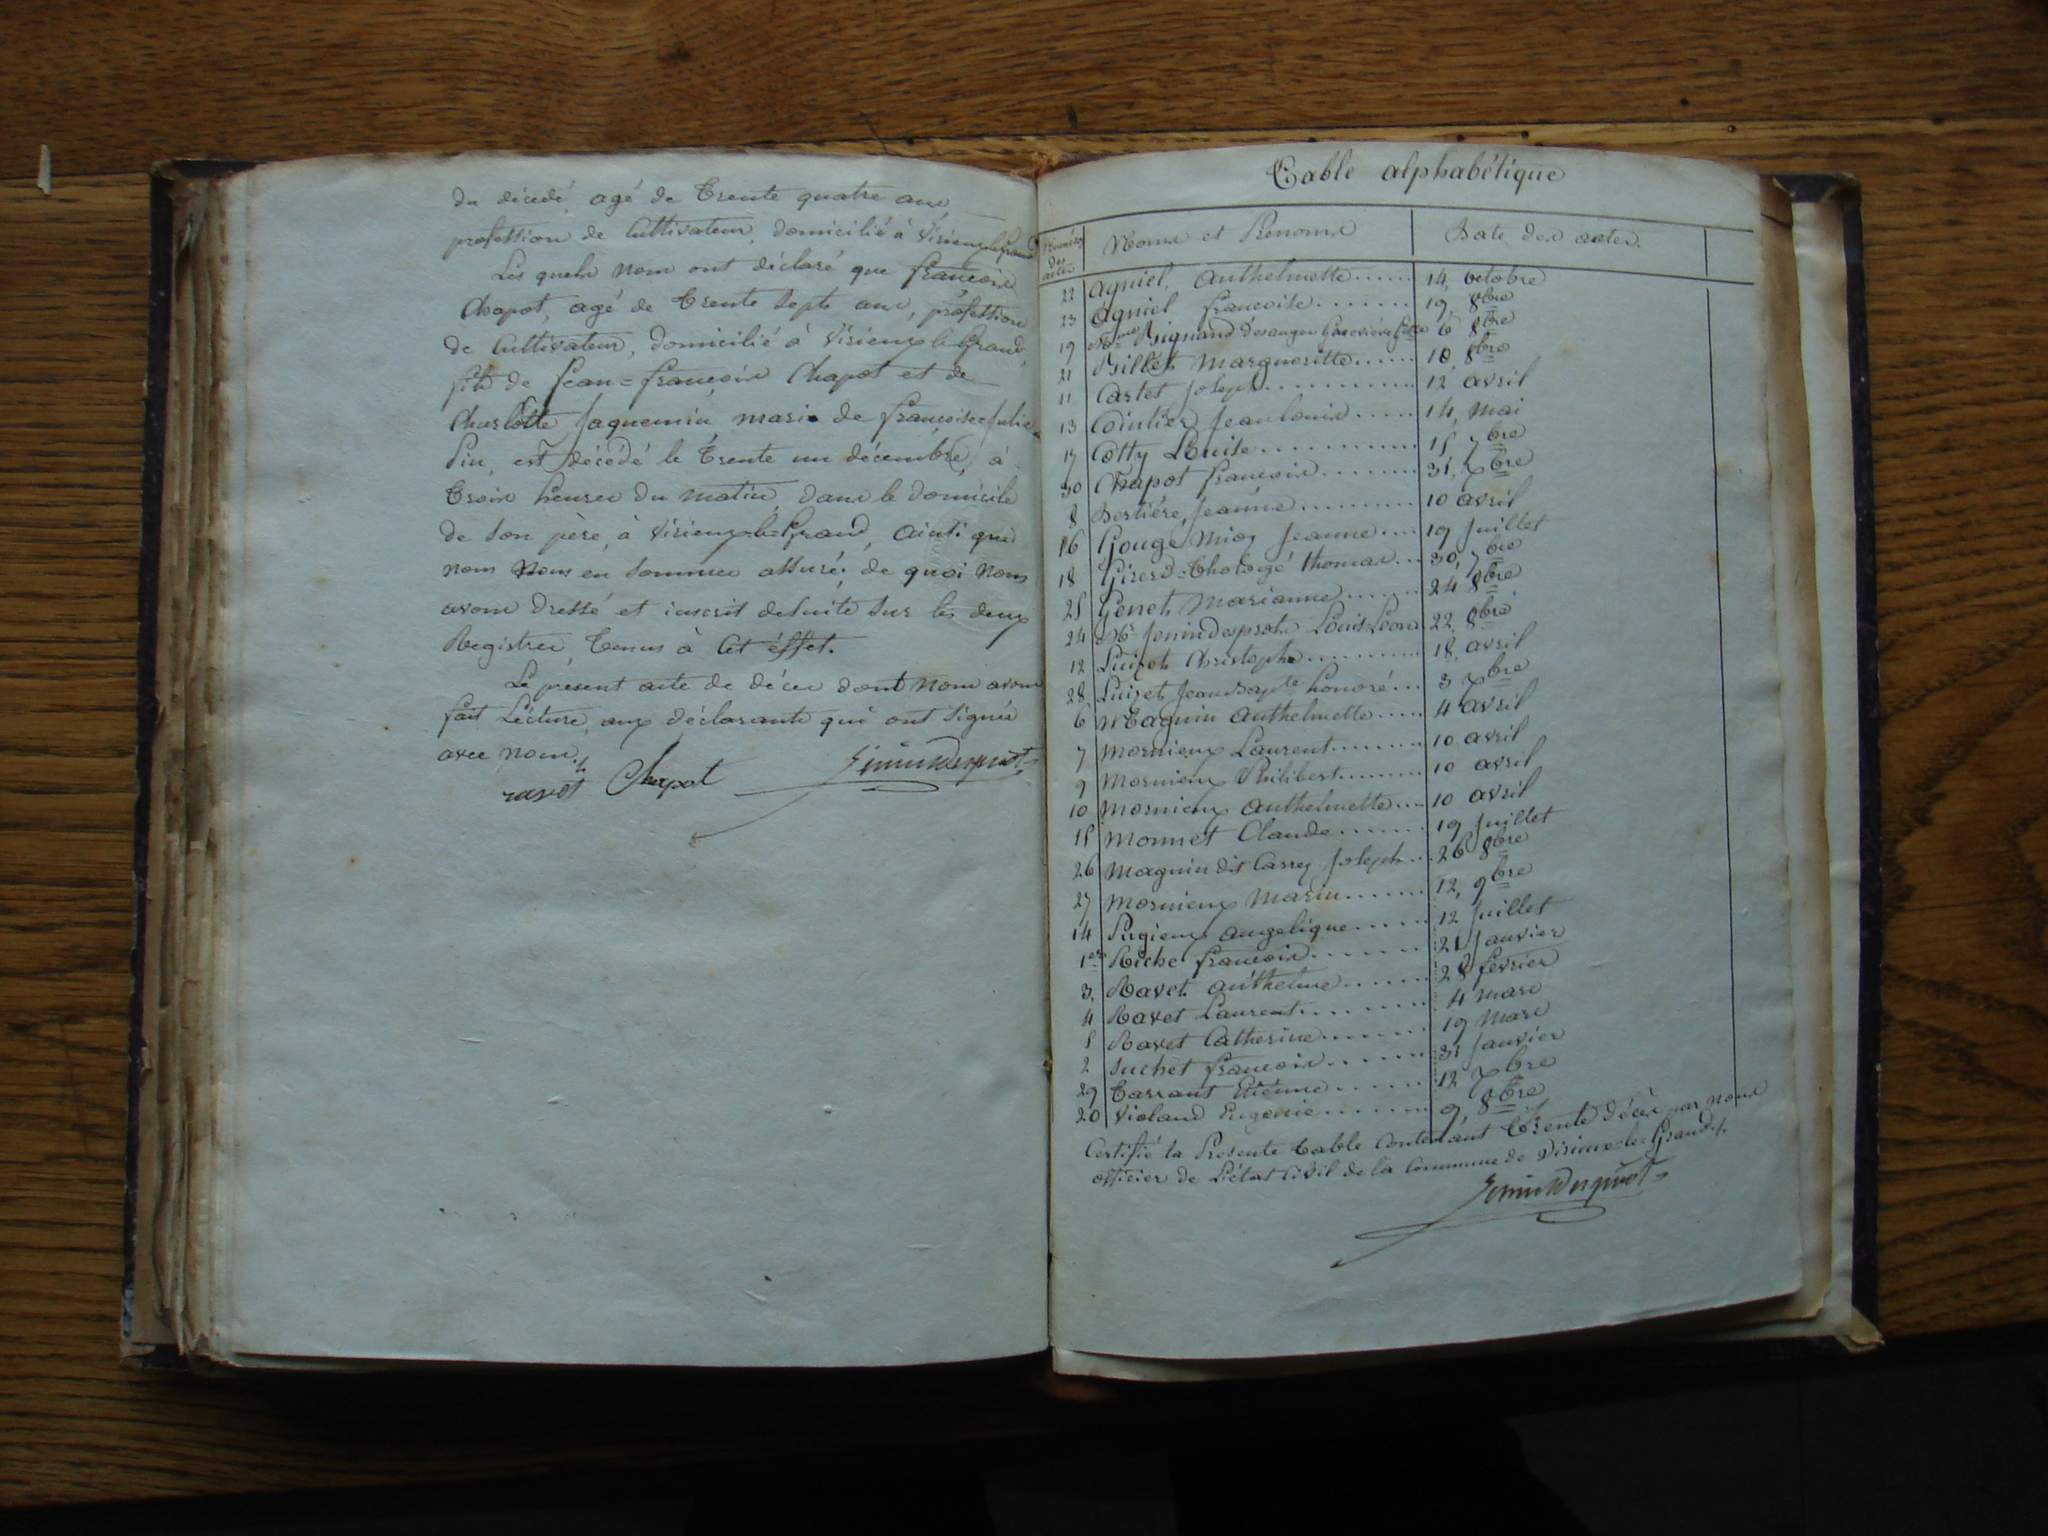 du décedé, agé de Trente quatre ans
profession de Cultivateur, domicilié à Virieux-le-Grand
Les quels nous ont déclaré que françois
Chapot, agé de Trente sept ans, profession
de Cultivateur, domicilié à Virieux-le-Grand,
fils de Jean=françois Chapot et de
Charlotte Jaquemin, mari de françoise Julie
Pin, est décédé le Trente un décembre, à
Trois heures du matin, dans le domicile
de son père, à Virieux-le-Grand, ainsi que
nous nous en sommes assuré; de quoi nous
avons dressé et inscrit desuite sur les deux
Registres, Tenus à Cet éffet.
Le present acte de décès dont nous avons
fait Lécture aux déclarants qui ont signés
avec nous.
ravet Chapot Jenin Desprost
Table alphabétique
Numéros des actes Noms et Prénoms Date des actes.
22 Agniel, Anthelmette 14, octobre
23 Agniel françoise 19 8bre
19 Bignand Désanges Geneviève 6 8bre
21 Billet, Margueritte 18 8bre
11 Cartet Joseph 12, avril
13 Cointier Jean louis 14, Mai
17 Cotty Louise 15 7bre
30 Chapot françois 31, xbre
8 Bertière, Jeanne 10 avril
16 Gouge Mion Jeanne 19 Juillet
18 Girerd=Tholozé thomas 30, 7bre
25 Genet, Marianne 24 8bre
24 Mr Jenin desprots Louis Léon 22, 8bre
12 Luizet, Christophe 18, avril
28 Luizet Jean Bapte honoré 3 xbre
6 Magnin Anthelmette 4 avril
7 Mornieux Laurent 10 avril
9 Mornieux Philibert 10 avril
10 Mornieux Anthelmette 10 avril
15 Monnet Claude 19 Juillet
26 Magnin dit Carrey Joseph 26 8bre
27 Mornieux Marin 12, 9bre
14 Pugieux angelique 12 Juillet
1er Riche françois 21 Janvier
3, Ravet, Anthelme 28 fevrier
4 Ravet Laurent 4 mars
5 Ravet Catherine 19 Mars
2 Suchet françois 31 Janvier
29 Tarrant Etiénne 12 xbre
20 Violand Eugénie 9, 8bre
Certifié la Présente table Contenant Trente décès par nous
officier de L'état Civil de la Commune de Virieux-le-Grand.
Jenin Desprost